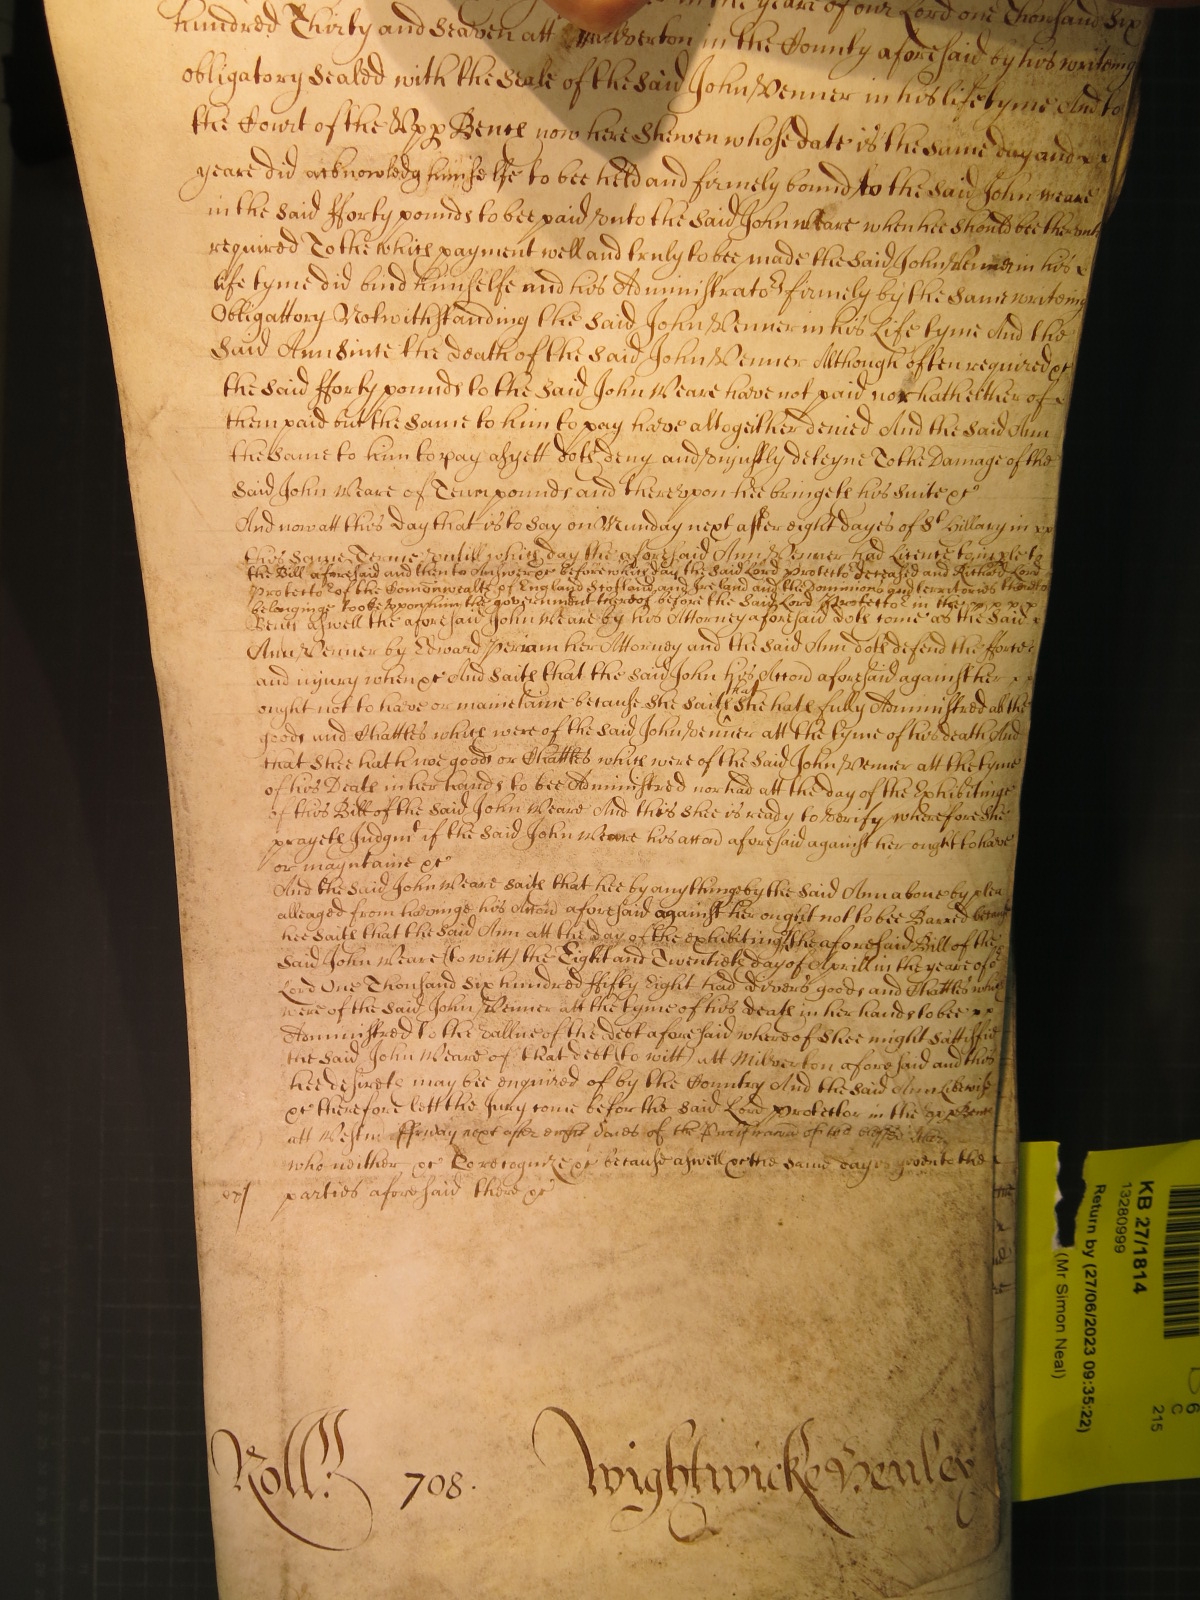 in the yeare of our Lord one Thousand Six
hundred Thirty and Seaven att Milverton in the County aforesaid by his writeing
obligatory Sealed with the Seale of the said John Venner in his life tyme And to
the Court of the Upp Bench now here Shewen whose date is the same day and
yeare did acknowledg himselfe to bee held and firmely bound to the said John Weare
in the said fforty pounds to bee paid unto the said John Weare when hee should bee thereunto
required To the which payment well and truly to bee made the said John Venner in his
life tyme did bind himselfe and his Administrato.rs firmely by the same writeing
Obligattory Notwithstanding the said John Venner in his Life tyme And the
said Ann Since the death of the said John Venner Although often required &c
the said fforty pounds to the said John Weare have not paid nor hath either of
them paid but the same to him to pay have altogeither denied And the said Ann
the same to him to pay as yett doth deny and unjustly deteyne To the Damage of the
said John Weare of Tenn pounds and thereupon hee bringeth his suite &c
And now att this Day that is to say on Munday next after eight dayes of St. Hillary in
this same Terme untill which day the aforesaid Ann Venner had Licence to imple to
the Bill aforesaid and then to Answer &c before which day the said Lord Protector deceased and Richard Lord
Protector of the Comonwealth of England Scotland and Ireland and the Dominions and territories thereto
belonginge tooke upon him the government thereof before the said Lord Protector in the upp
Bench aswell the aforesaid John Weare by his Attorney aforesaid doth come as the said
Ann Venner by Edward Periam her Attorney and the said Ann doth defend the fforce
and injury when &c And saith that the said John his Accon aforesaid against her
ought not to have or mainetaine because she saith that she hath fully Administred all the
goods and Chattles which were of the said John Venner att the tyme of his death And
that shee hath noe goods or Chattles which were of the said John Venner att the tyme
of his Death in her hands to bee Administred nor had att the day of the Exhibitinge
of this Bill of the said John Weare And this shee is ready to verify wherefore she
prayeth Judgmt if the said John Weare his accon aforesaid against her ought to have
or mayntaine &c
And the said John Weare saith that hee by any thinge by the said Ann above by plea
alleaged from haveinge his Accon aforesaid against her ought not to bee Barred because
hee saith that the said Ann att the day of the exhibiting the aforesaid Bill of the
said John Weare (to witt) the Eight and Twentieth day of Aprill in the yeare of or
Lord One Thousand Six hundred ffifty Eight had divers goods and Chattles which
were of the said John Venner att the tyme of his death in her hands to bee
Administred To the vallue of the debt aforesaid whereof shee might sattisfie
the said John Weare of that debt (to witt) att Milverton aforesaid and this
hee desireth may bee enquired of by the Country And the said Ann likewise
&c therefore lett the Jury come before the said Lord Protector in the upp Bench
att Westm ffryday next after eight daies of the Purificacon of the blessed
who neither &c To recognize &c because aswell &c the same day is given to the
parties aforesaid there &c
Roll. 708. Wightwicke Henley
KB 27/1814
13280999
Return by (27/06/2023 09:35:22)
(Mr Simon Neal)
6
C
215